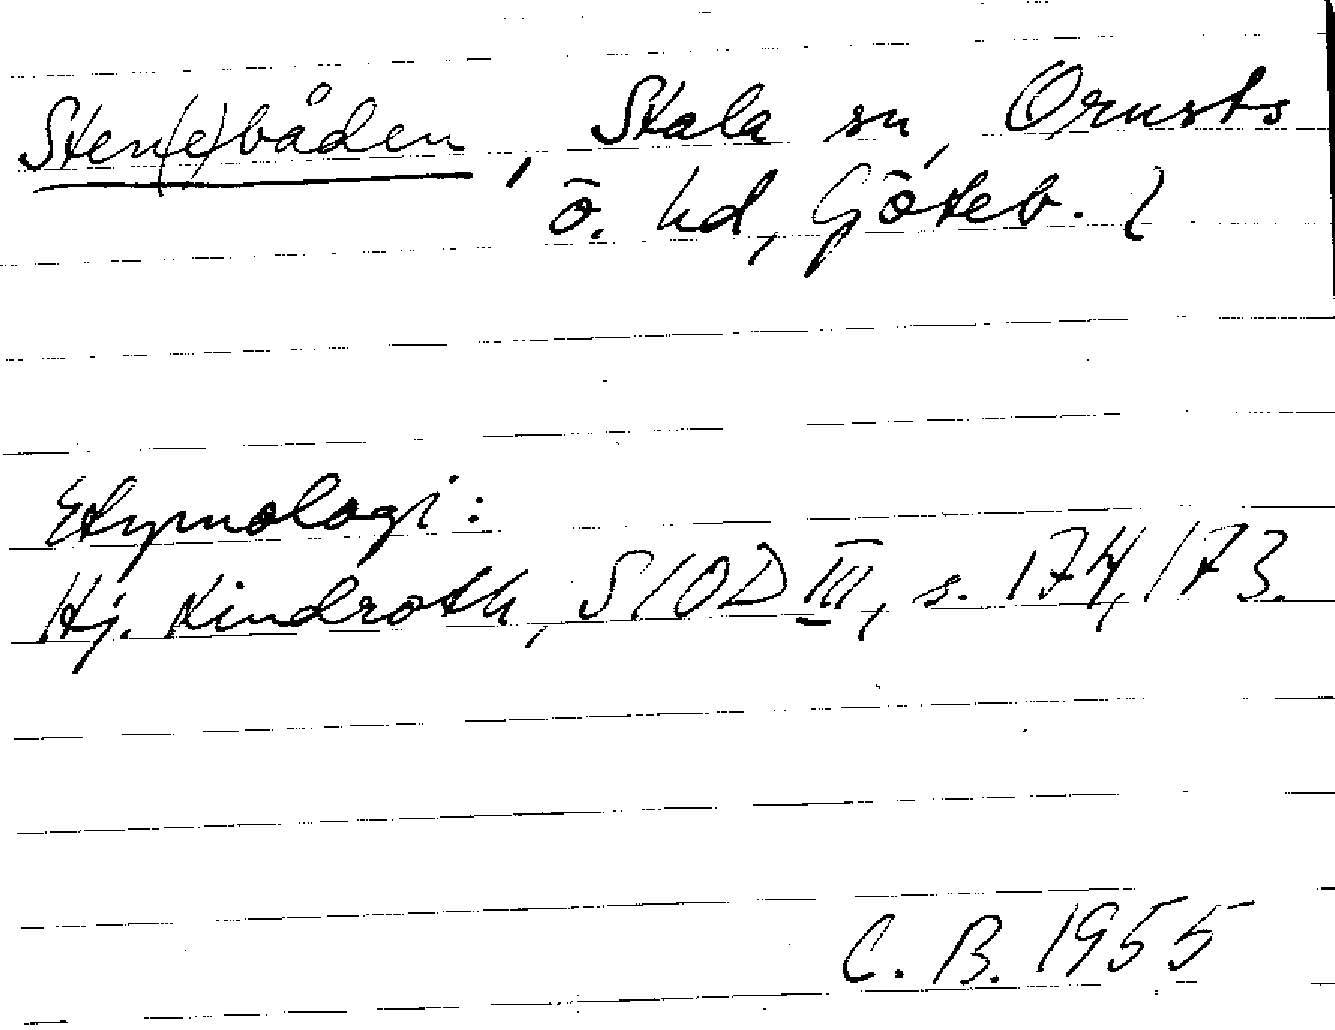 Sten(e)båden, Stala sn, Orusts
ö. hd, Göteb. l
Etymologi:
Hj. Lindroth, SIOD III, s. 174, 173.
C. B. 1955